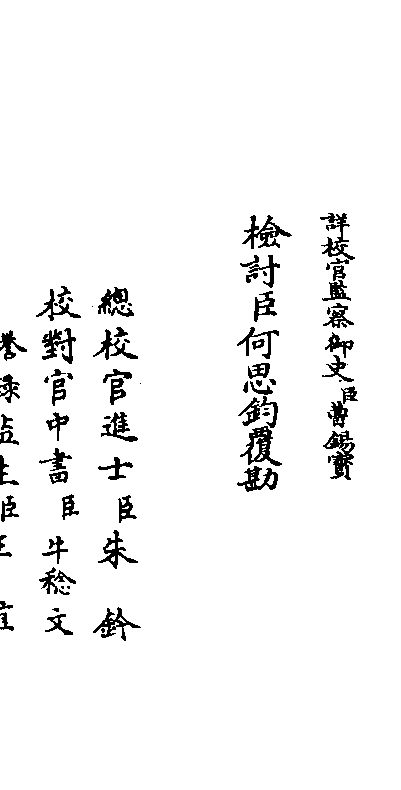 詳校官監察御史臣曹錫寶
檢討臣何思鈞覆勘
總校官進士臣朱鈐
校對官中書臣牛稔文
謄錄監生臣王